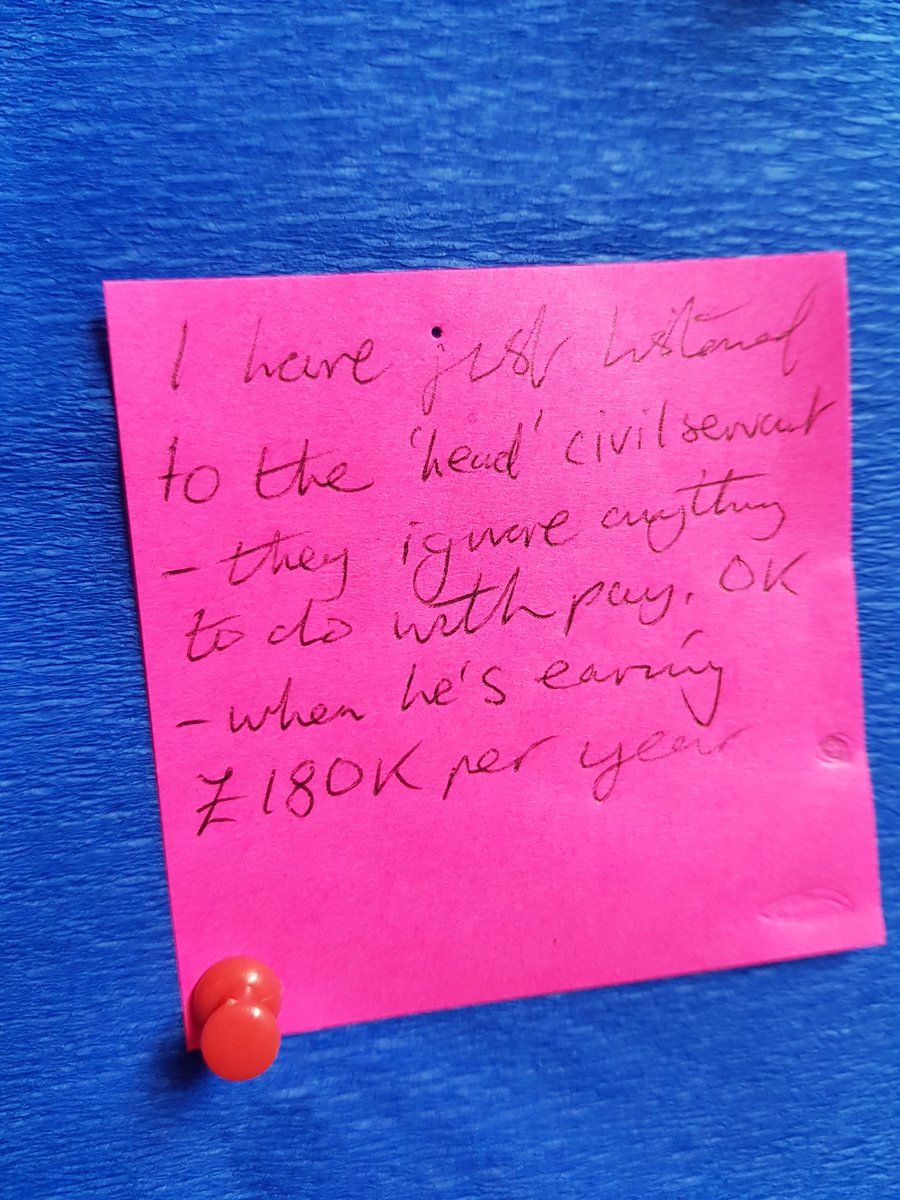 I have just listened
to the 'head' civil servant
- they ignore anything
to do with pay. OK
- when he's earning
£180K per year